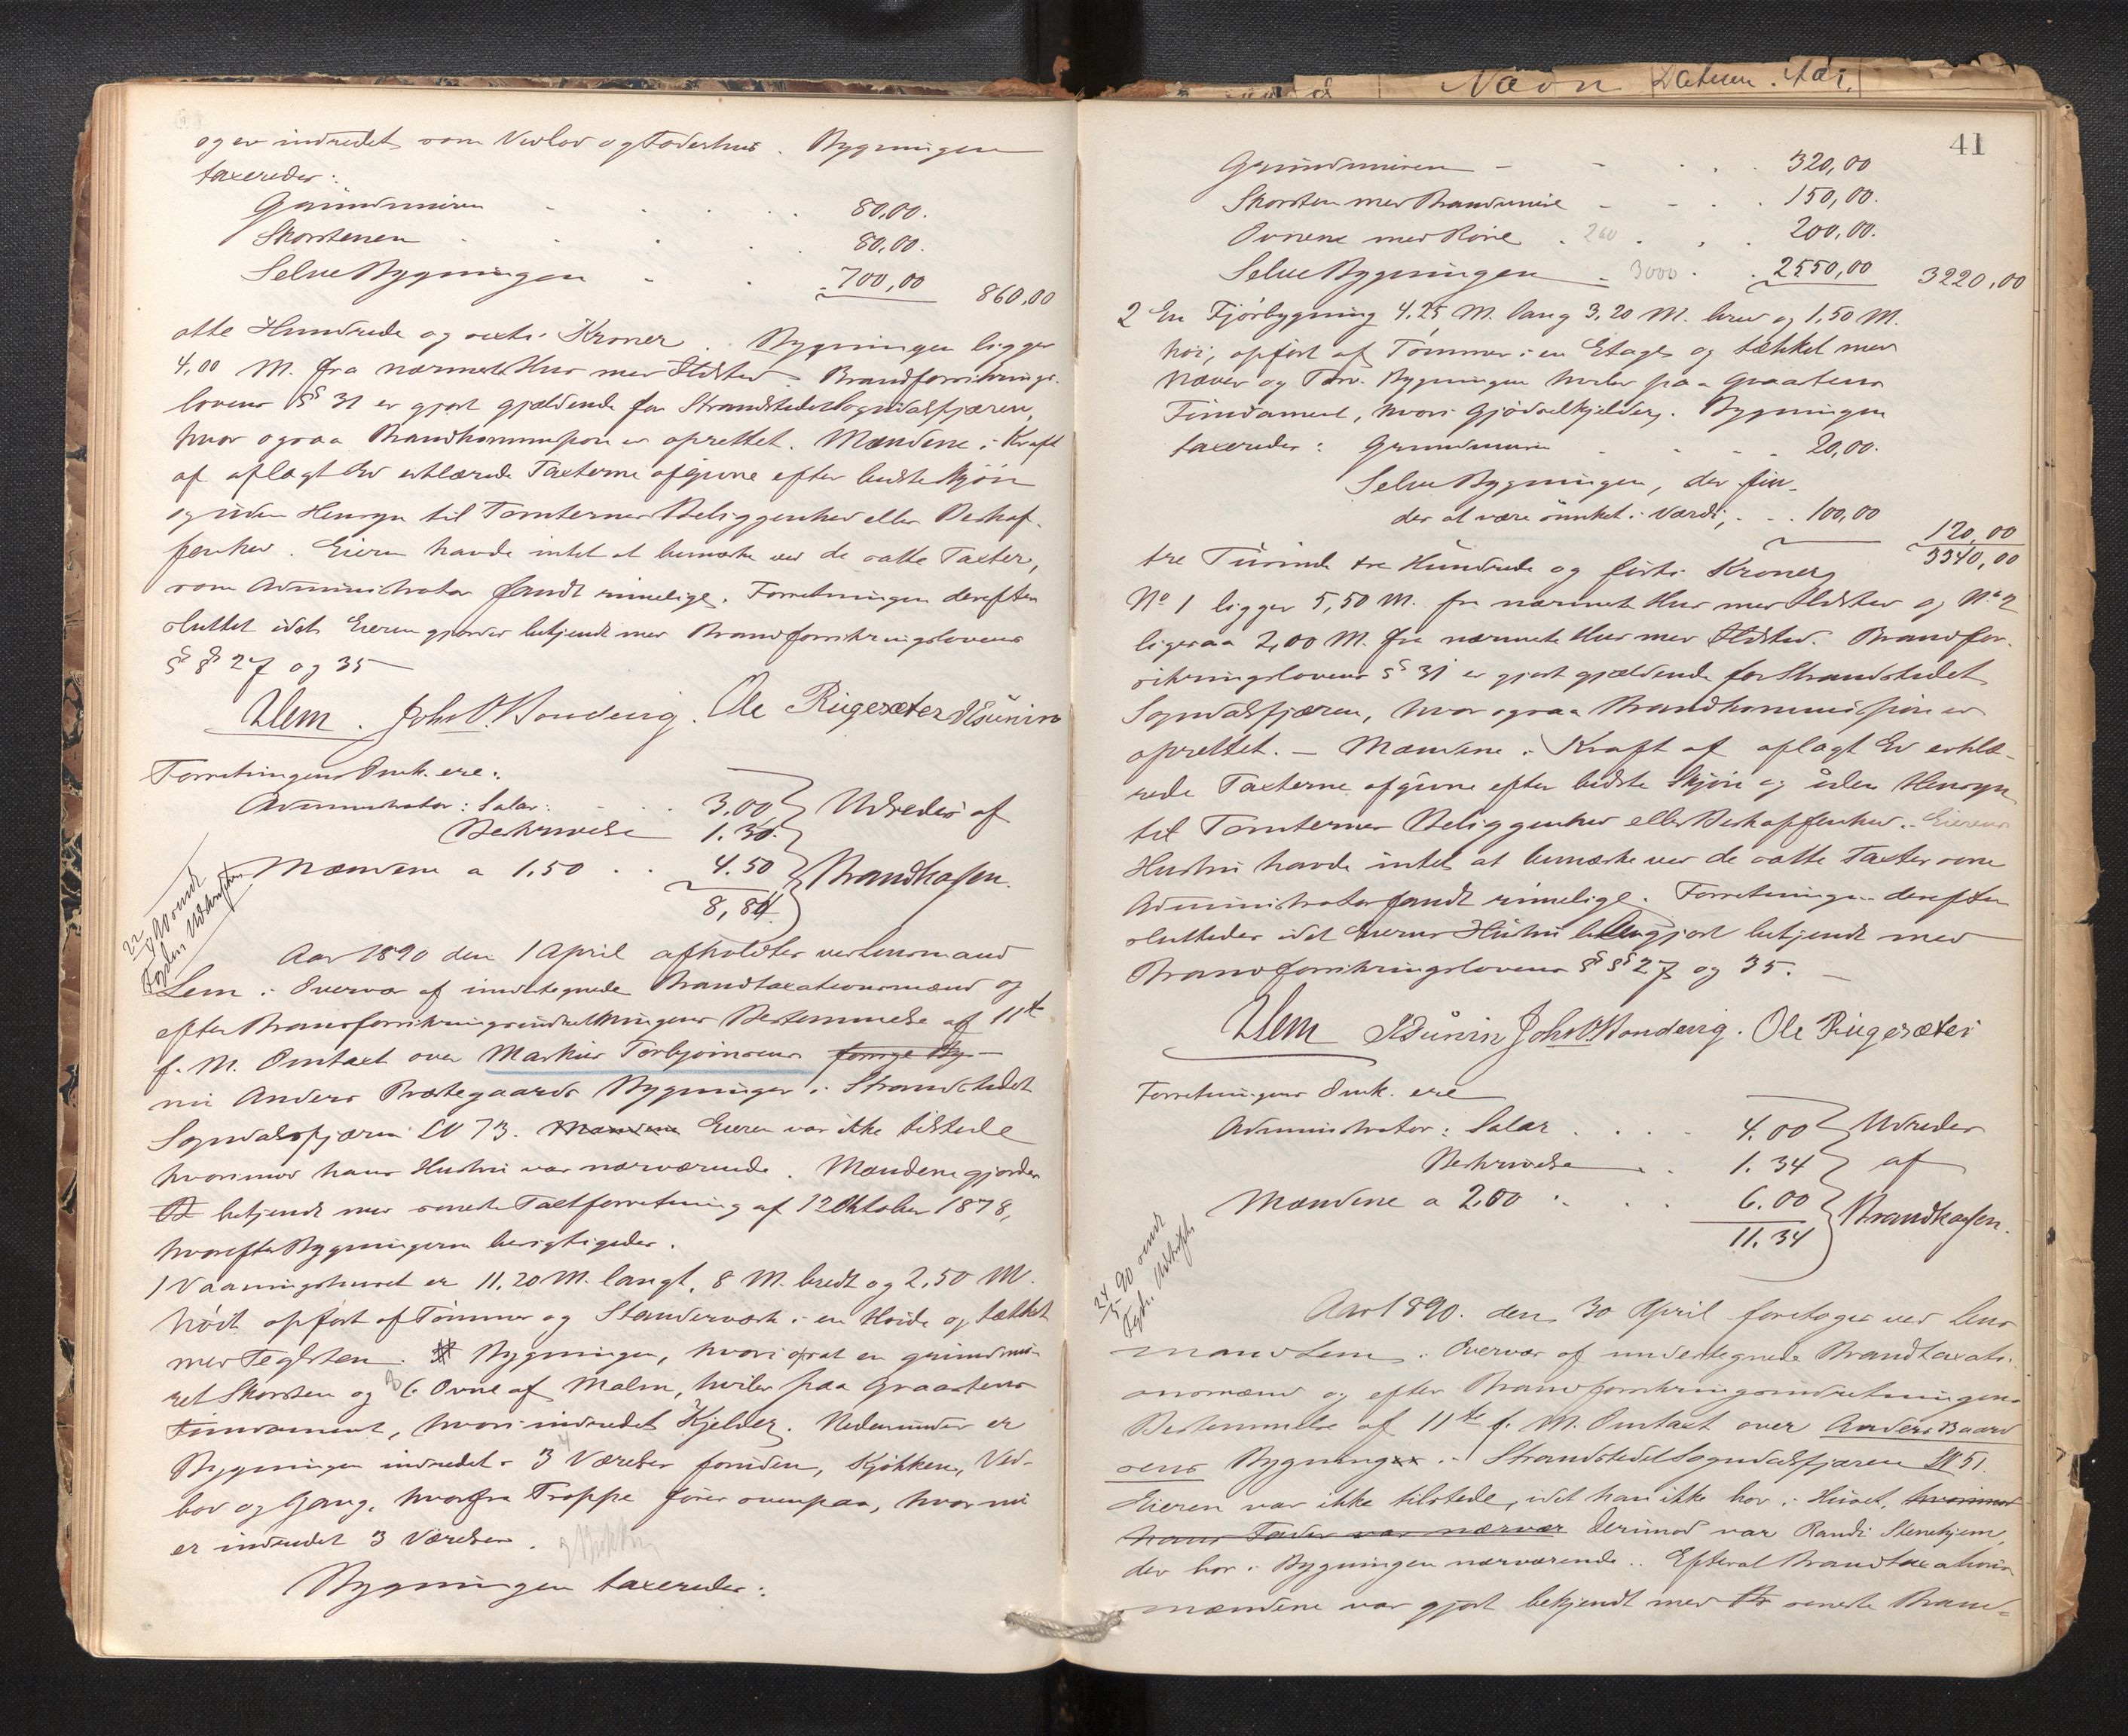 og er indredet som Vedbod og Foderhus. Bygningen
taxeredes:
Grundmuren - - - 80,00.
Skorstenen - - - 80,00.
Selve Bygningen - - 700,00 860,00
otte Hundrede og sexti Kroner. Bygningen ligger
4,00 M. fra nærmeste Hus med Ildsted. Brandforsikrings-
lovens § 31 er gjort gjældende for Strandstedet Sogndalsfjæren,
hvor ogsaa Brandkommission er oprettet. Mændene i Kraft
af aflagt Ed erklærede Taxterne afgivne efter bedste Skjøn
og uden Hensyn til Tomternes Beliggenhed eller Beskaf-
fenhed. Eieren havde intet at bemærke ved de satte Taxter,
som Administrator fandt rimelige. Forretningen derefter
sluttet idet Eieren gjordes bekjendt med Brandforsikringslovens
§ § 27 og 35
Lem. Joh. O. Hondevig. Ole Rügesæter
Forretningens Omk. ere:
Administrator: Salær: - - 3.00 Udredes af
Beskrivelse 1.34.
Mændene a 1,50 . . 4.50 Brandkassen.
8,84
22/4 90 sendt
Fogden Udskriften
Aar 1890 den 1 April afholdtes ved Lensmand
Lem i Overvær af undertegnede Brandtaxationsmænd og
efter Brandforsikringsindretningens Bestemmelse af 11te
f. M. Omtaxt over Markus Torbjørnsens forrige By-
nu Anders Prestegaards Bygninger i Strandstedet
Sogndalsfjæren LN 73. Mændene Eieren var ikke tilstede
hvorimod hans Hustru var nærværende. Mændene gjordes
bekjendt med seneste Taxtforretning af 12 Oktober 1878,
hvorefter Bygningerne besigtigedes.
1 Vaaningshuset er 11.20 M. langt, 8 M. bredt og 2,50 M.
høit opført af Tømmer og Stenderværk i en Høide og tækket
med Teglsten. Bygningen, hvori opsat en grundmu-
ret Skorsten og 6 Ovne af Malm, hviler paa Graastens
Fundament, hvori indredet Kjelder. Nedenunder er
Bygningen indredet 3 Værelser foruden, Kjøkken, Ved-
bod og Gang, hvorfra Trappe fører ovenpaa, hvor nu
er indredet 3 Værelser.
Bygningen taxeredes:
41
Grundmuren - - . . 320,00
Skorsten med Brandmure - - . . 150,00.
Ovnene med Rør . 260 . . . 200,00.
Selve Bygningen - 3000 . . 2550,00 3220,00
2 En Fjøsbygning 4.25 M. lang 3.20 M. bred og 1,50 M.
høi, opført af Tømmer i en Etage og tækket med
Næver og Torv. Bygningen hviler paa Graastens
Fundament, hvori Gjødselkjelder. Bygningen
taxeredes: Grundmuren - - - 20,00.
Selve Bygningen, der fin-
des at være sunket i Værdi, - . . 100,00 120,00
3340,00
tre Tusinde tre Hundrede og førti Kroner
No 1 ligger 5,50 M. fra nærmeste Hus med Ildsted og No 2
ligesaa 2,00 M. fra nærmeste Hus med Ildsted. Brandfor-
sikringslovens § 31 er gjort gjældende for Strandstedet
Sogndalsfjæren, hvor ogsaa Brandkommission er
oprettet. - Mændene i Kraft af aflagt Ed erklæ-
rede Taxterne afgivne efter bedste Skjøn og uden Hensyn
til Tomternes Beliggenhed eller Beskaffenhed. Eierens
Hustru havde intet at bemærke ved de satte Taxter som
Administrator fandt rimelige. Forretningen derefter
sluttedes idet Eierens Hustru blev gjort bekjendt med
Brandforsikringslovens § § 27 og 35.
Lem Joh. O. Hondevig. Ole Rügesæter
Forretningens Omk. ere
Administrator: Salær . . . . 4.00 Udredes
Beskrivelse . . 1.34 af
Mændene a 2.00 . . . 6.00 Brandkassen.
11.34
24/5 90 sendt
Fgd. Udskrift
Aar 1890. den 30 April foretoges ved Lens-
mand Lem i Overvær af undertegnede Brandtaxati-
onsmænd og efter Brandforsikringsindretningens
Bestemmelse af 11te f. M. Omtaxt over Anders Baard
sens Bygning i Strandstedet Sogndalsfjæren LN 51.
Eieren var ikke tilstede, idet han ikke bor i Huset, hvorimod
hans Fader var nærvær derimod var Randi Stenehjem,
der bor i Bygningen nærværende. Efterat Brandtaxations
mændene var gjort bekjendt med seneste Brand-